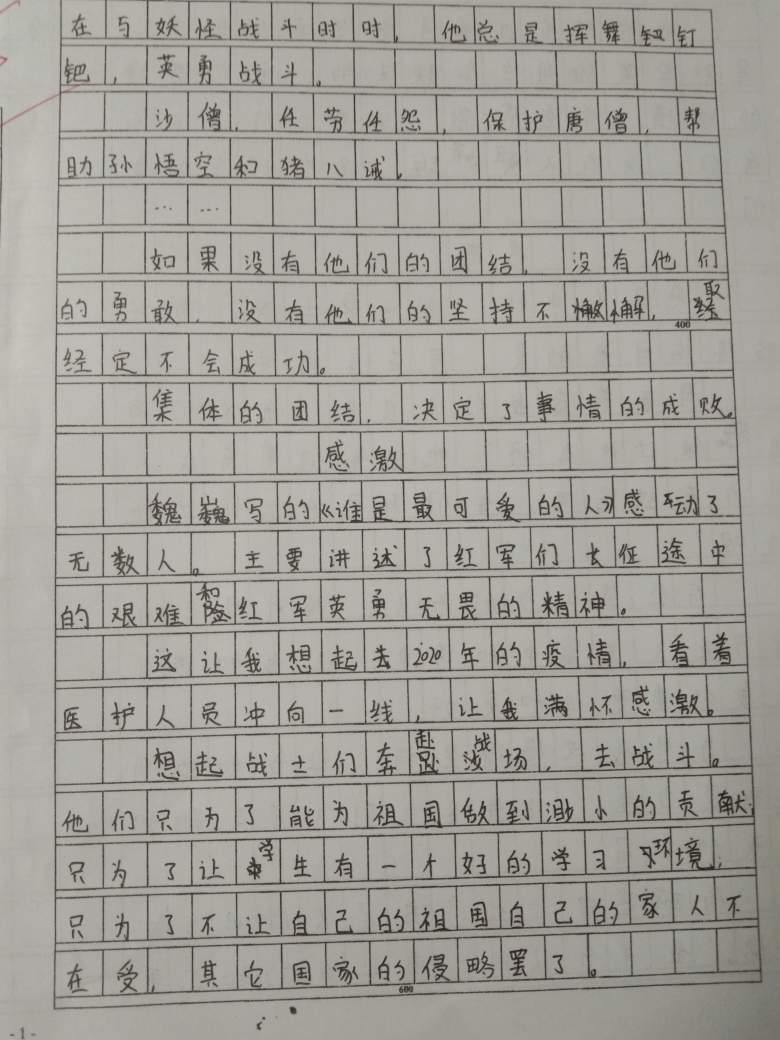 在与妖怪战斗时时，他总是挥舞钗钉
钯，英勇战斗。
沙僧，任劳任怨，保护唐僧，帮
助孙悟空和猪八诫。
……
如果没有他们的团结，没有他们
的勇敢，没有他们的坚持不懈，取
400
经定不会成功。
集体的团结，决定了事情的成败。
感激
魏巍写的《谁是最可爱的人》感动了
无数人。主要讲述了红军们长征途中
的艰难和红军英勇无畏的精神。
这让我想起去2020年的疫情，看着
医护人员冲向一线，让我满怀感激。
想起战士们奔赴战场，去战斗。
他们只为了能为祖国做到渺小的贡献；
只为了让学生有一个好的学习环境；
只为了不让自己的祖国自己的家人不
在受，其它国家的侵略罢了。
600
- 1 -